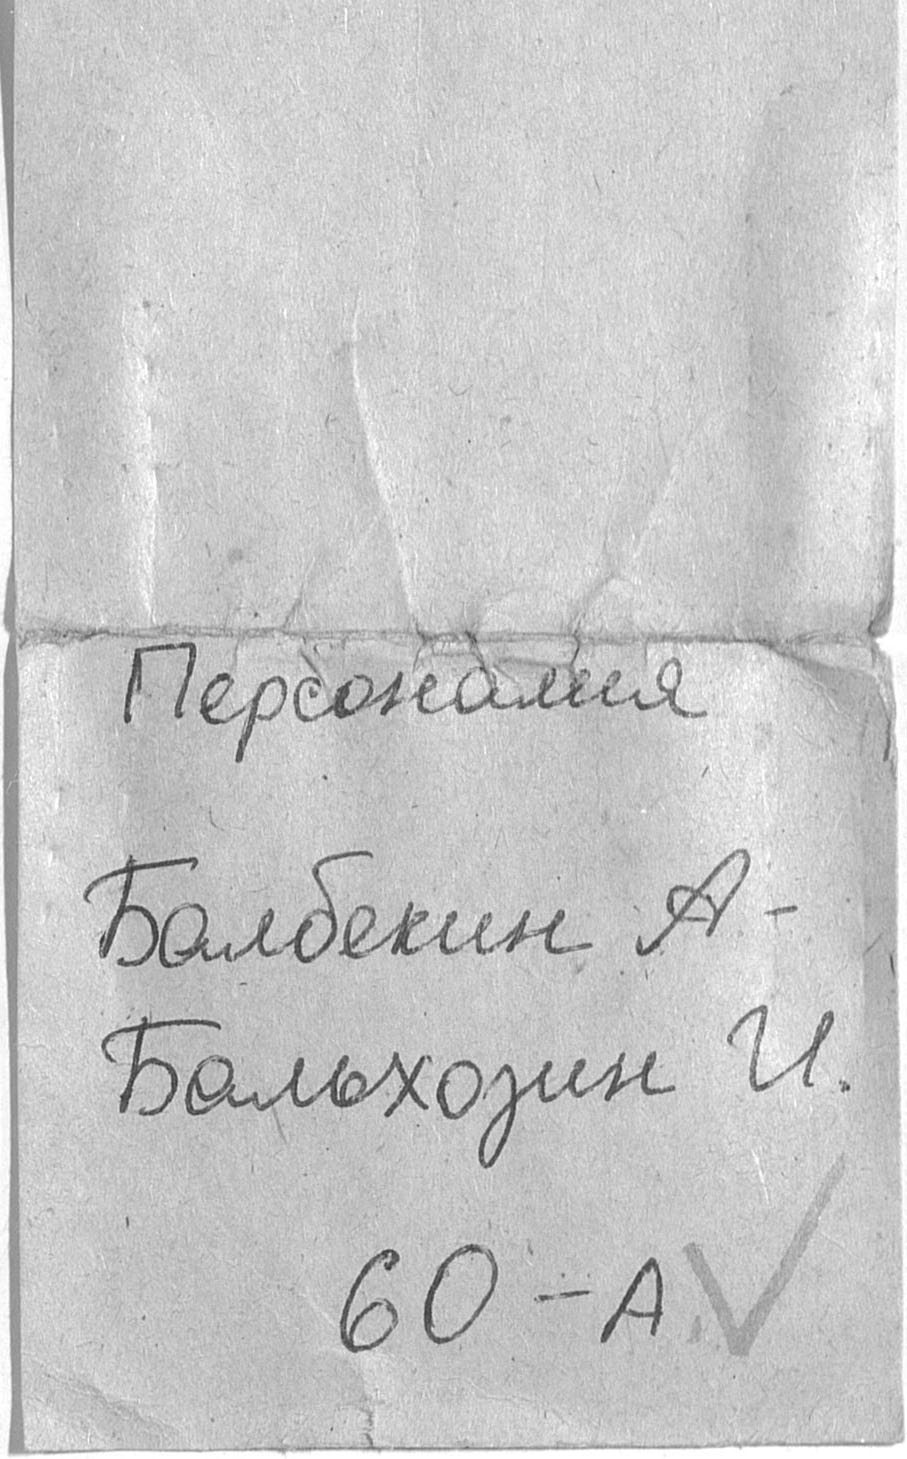 Персоналия
Балбекин А -
Бальхозин И.
60 - А